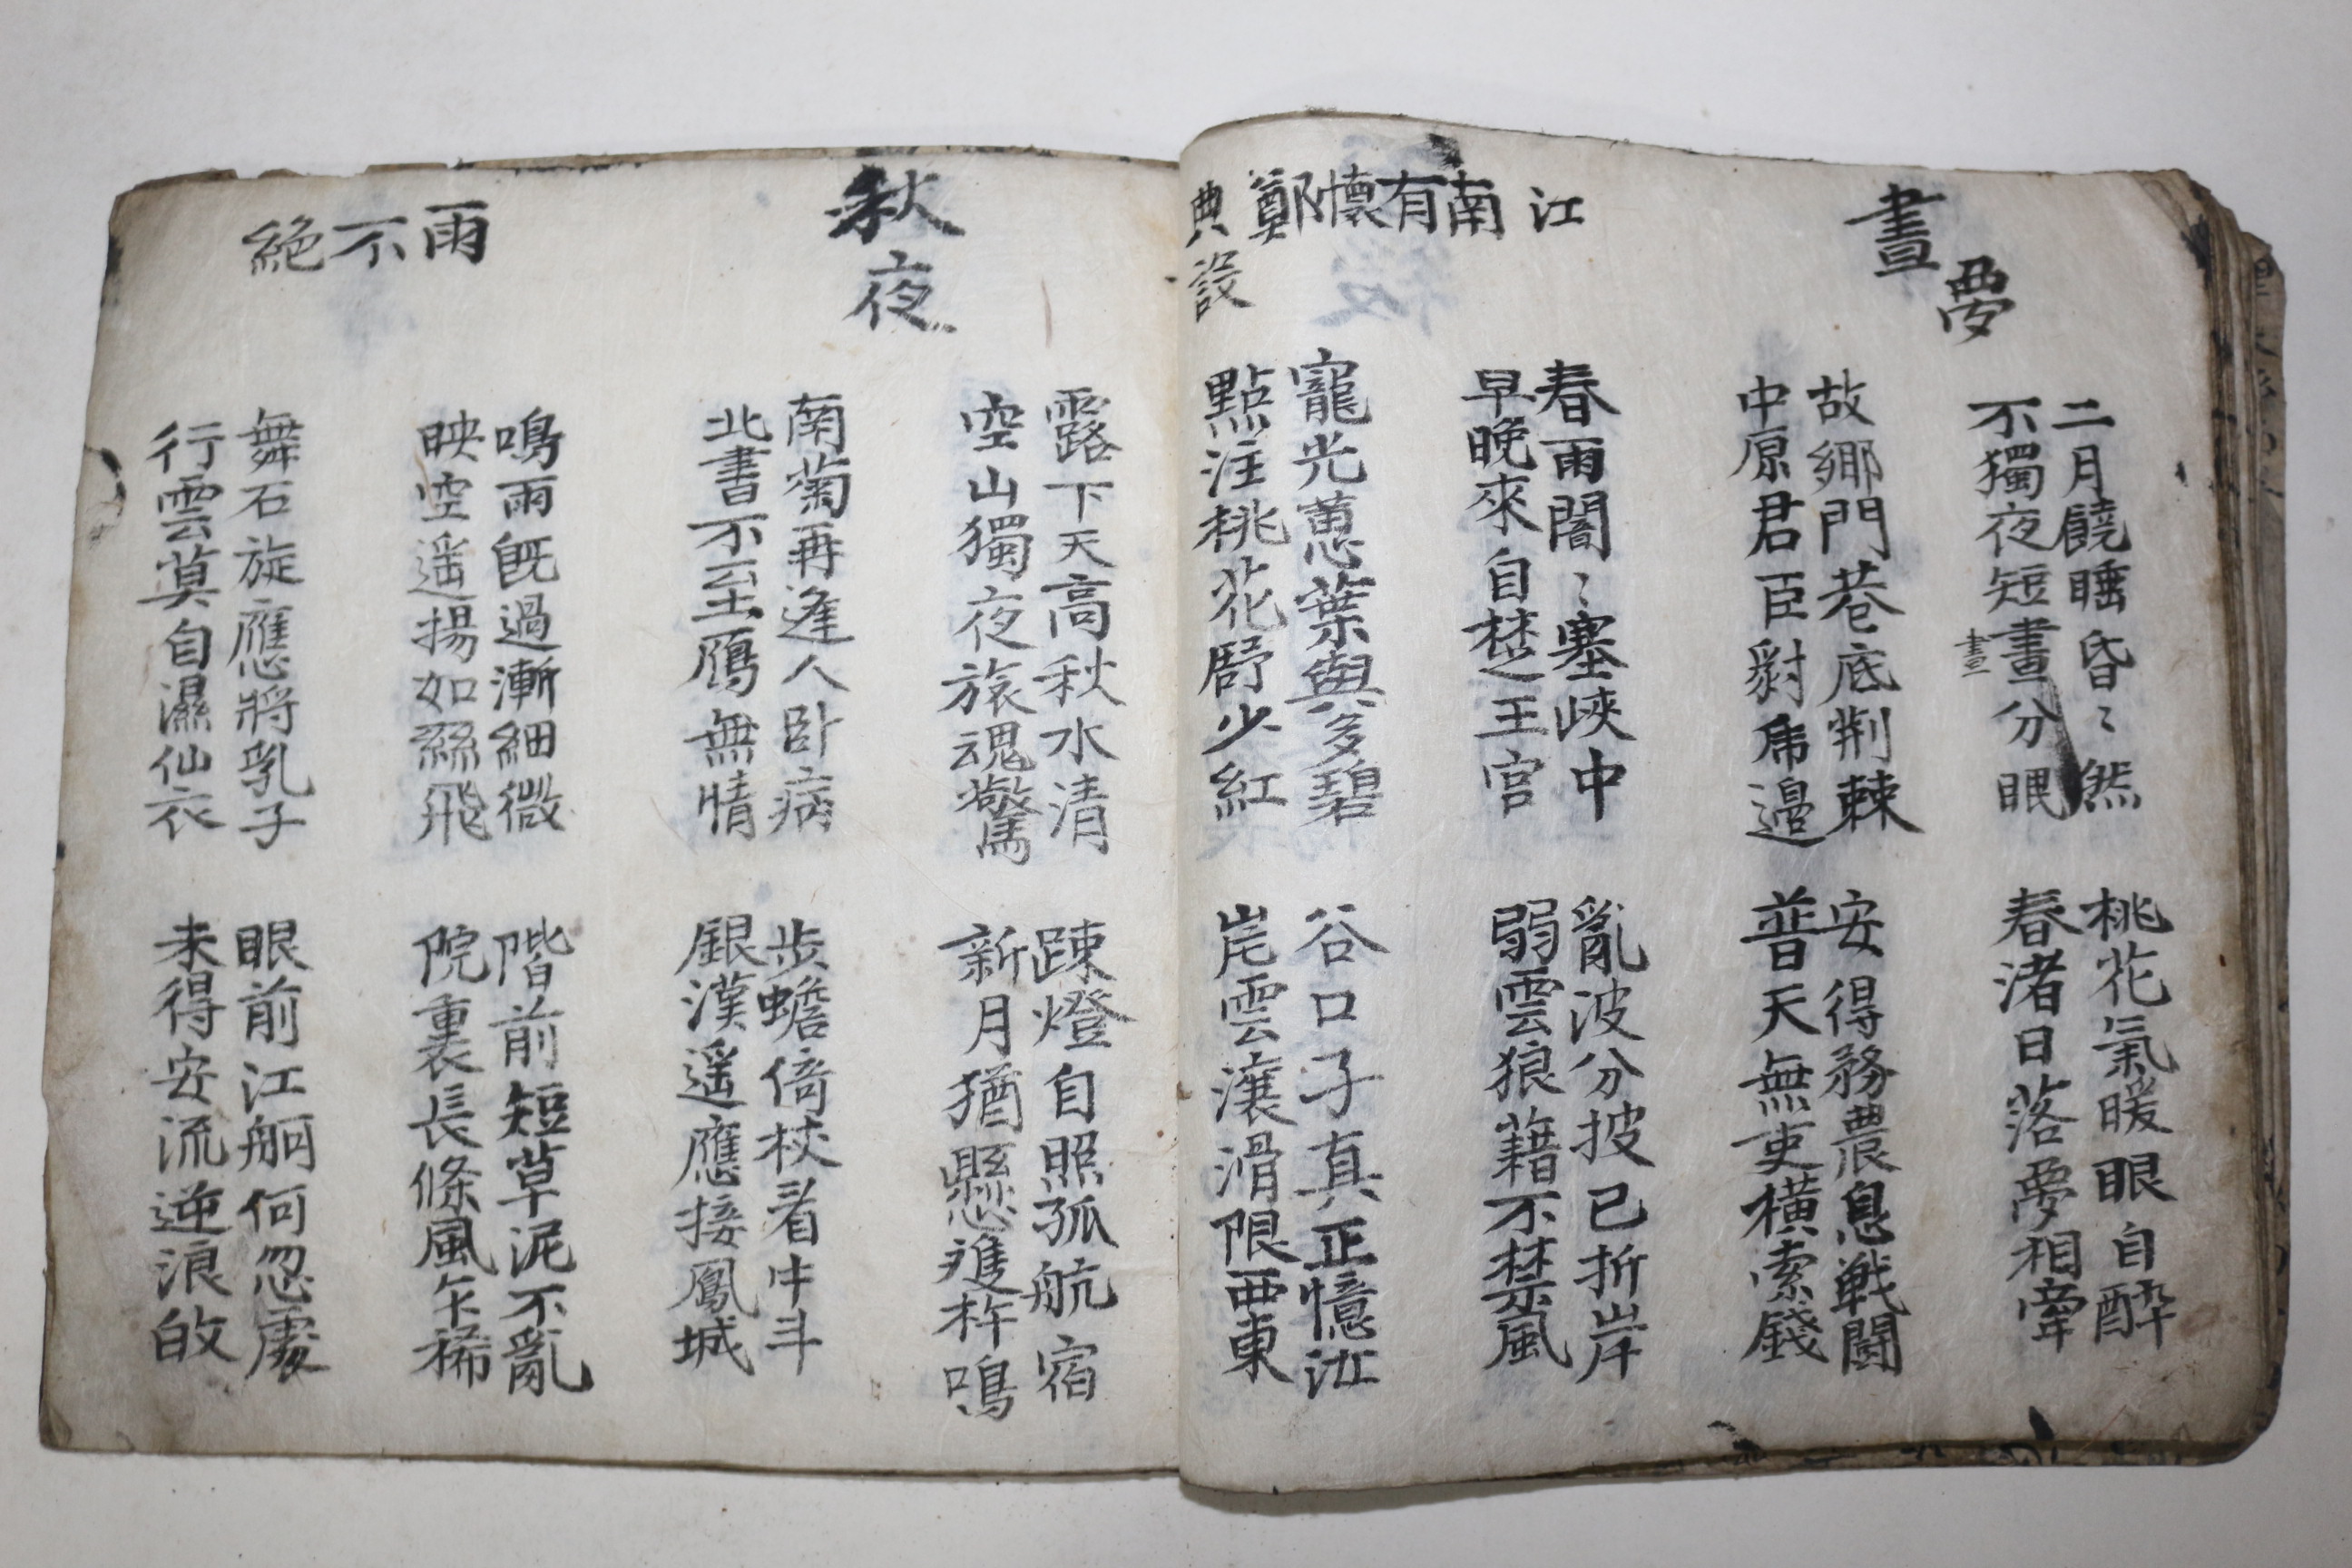 晝夢
二月饒睡昏〻然
不獨夜短晝分眠
晝
桃花氣暖眼自醉
春渚日落夢相牽
故鄉門巷底荆棘
中原君臣豺虎邉
安得務農息戦闘
普天無吏橫索錢
江南有懷鄭典設
春雨闇〻塞峽中
早晚來自楚王宮
亂波分披已折岸
弱雲狼藉不禁風
寵光蕙葉與多碧
點注桃花舒少紅
谷口子真正憶江
岸雲瀼滑限西東
秋夜
露下天高秋水清
空山獨夜旅魂驚
踈燈自照孤航宿
新月猶懸雙杵鳴
南菊再逢人卧病
北書不至鴈無情
步蟾倚杖看牛斗
銀漢遥應接鳳城
雨不絕
鳴雨既過漸細微
映空遥揚如絲飛
階前短草泥不亂
院裏長條風乍稀
舞石旋應將乳子
行雲莫自濕仙衣
眼前江舸何忽處
未得安流逆浪